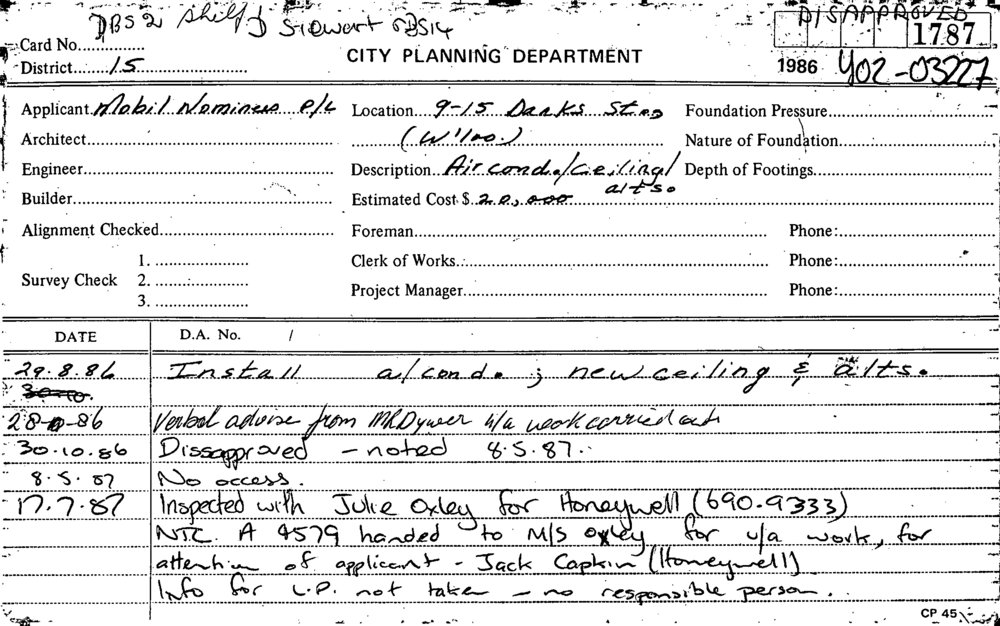 DBS 2 Shelf D Stewart
DISAPPROVED
1787
Card No.
District 15
CITY PLANNING DEPARTMENT
1986 Y02-03227
Applicant Mobil Nominees P/L Location 9-15 Danks St Foundation Pressure
Architect (W'loo.) Nature of Foundation
Engineer Description Air cond./ceiling/ Depth of Footings
alts.
Builder Estimated Cost $ 20,000
Alignment Checked Foreman Phone:
1. Clerk of Works Phone:
Survey Check 2.
3. Project Manager Phone:
DATE D.A. No. /
29.8.86 Install a/cond. ; new ceiling & alts.
30.10.
28-86 Verbal advise from MR Dywer u/a work carried out
30.10.86 Dissapproved - noted 8.5.87.
8.5.87 No access.
17.7.87 Inspected with Julie Oxley for Honeywell (690-9333)
NTC. A 4579 handed to M/S Oxley for u/a work, for
attention of applicant - Jack Capkin (Honeywell)
Info for L.P. not taken - no responsible person.
CP 45